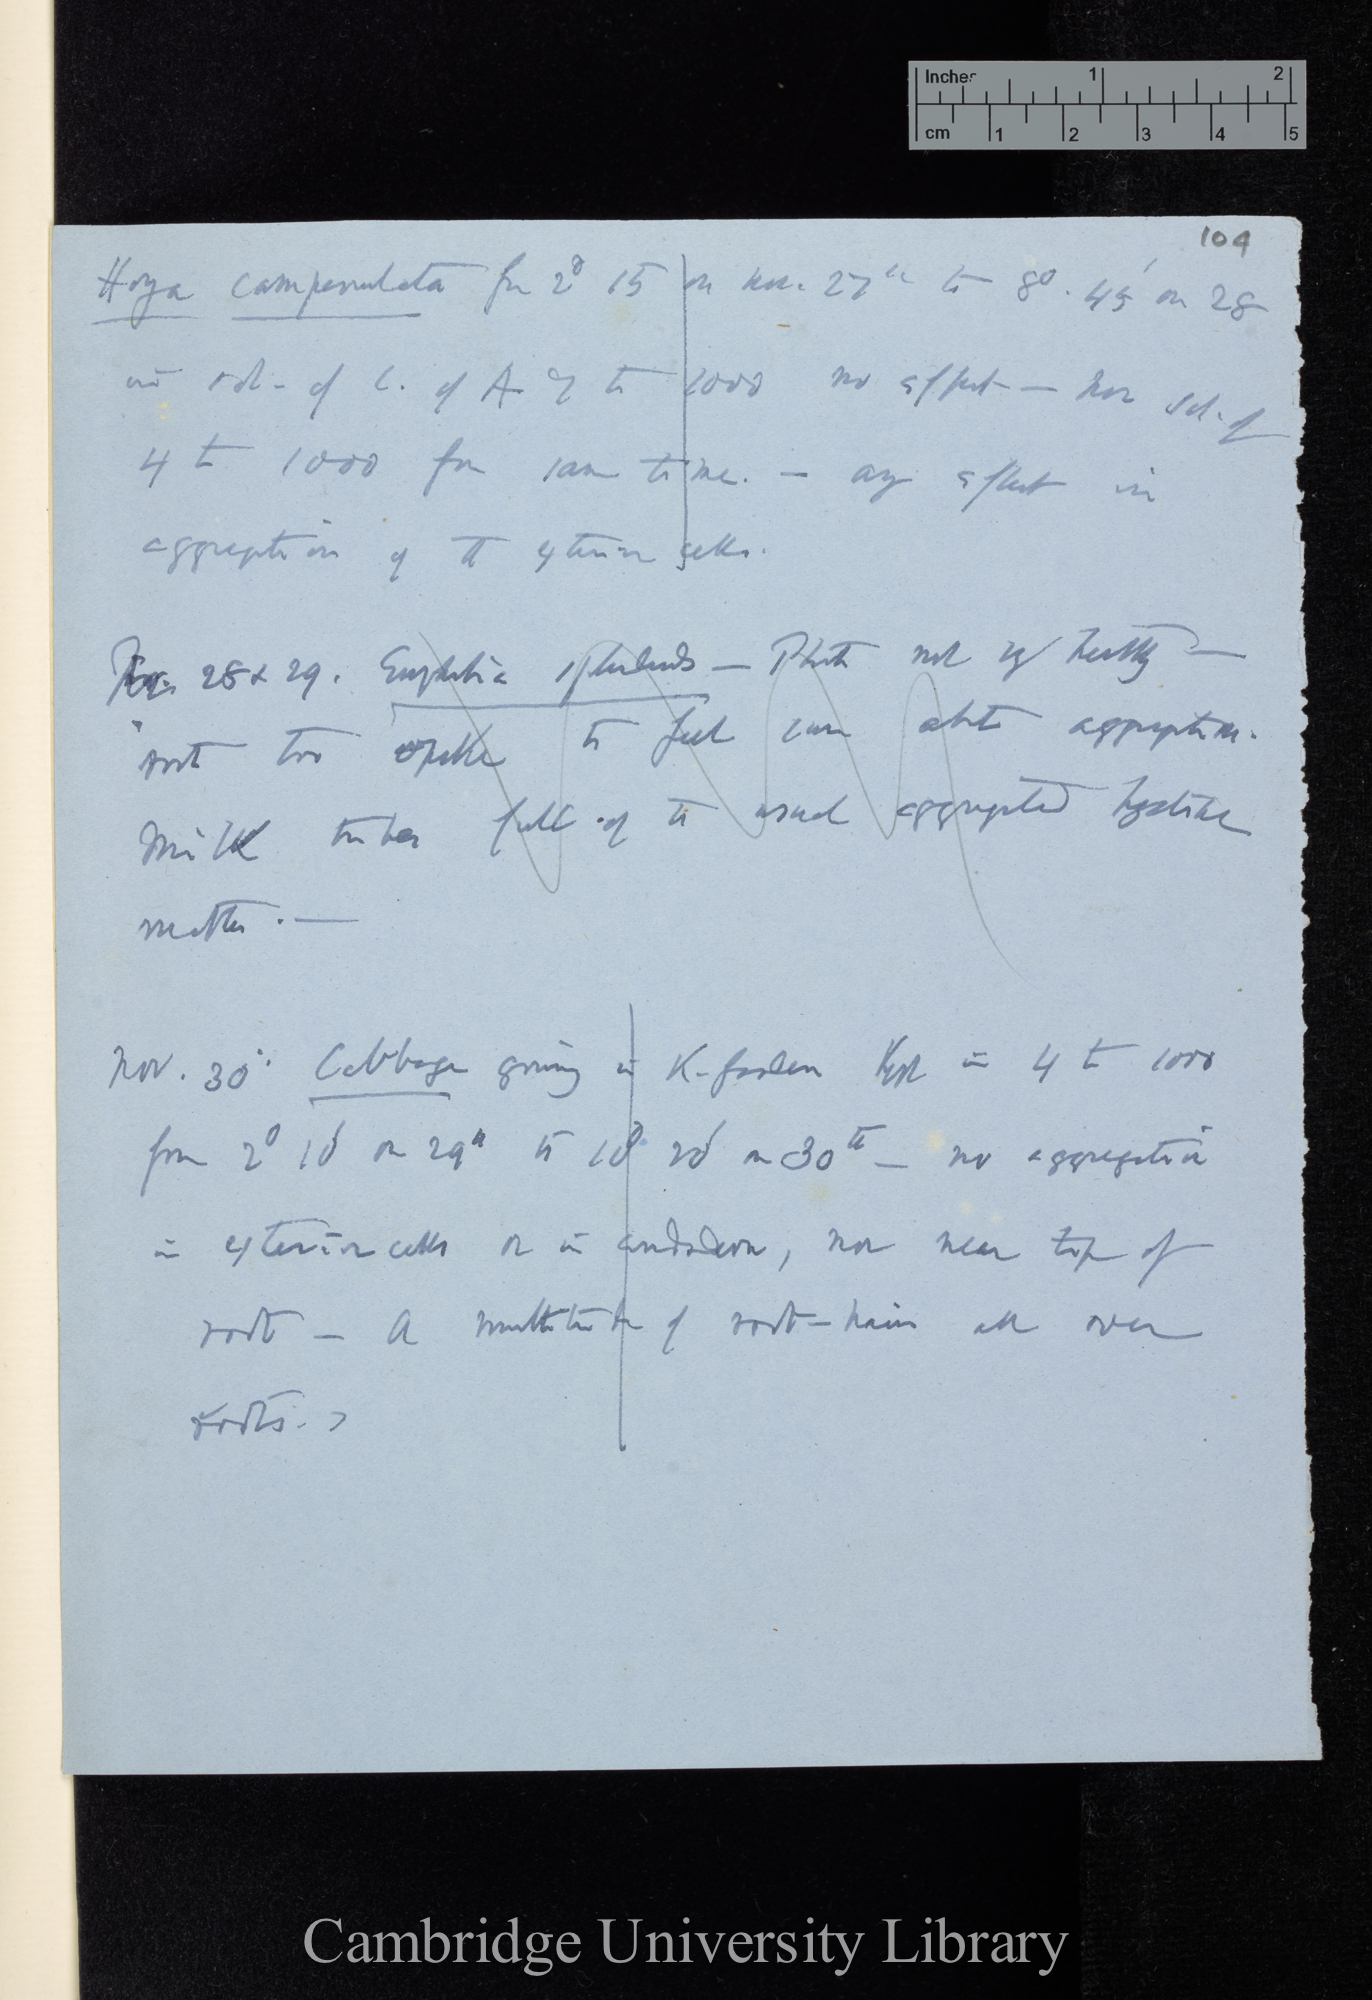 Inches 1 2
cm 1 2 3 4 5
104
Hoya campanulata for 2° 15 on Nov. 27th to 8°. 45' on 28
in sol. of C. of A 7 to 1000 no effect — nor sol. of
4 to 1000 for same time. — any effect in
aggregation of the exterior cells.
Nov. 28 & 29. Euphorbia splendens — Plants not v healthy —
root too opake to feel sure about aggregation.
Milk tubes full of the usual aggregated hyaline
matter. —
Nov. 30. Cabbage growing in K-garden Kept in 4 to 1000
from 2° 10' on 29th to 10° 20' on 30th — no aggregation
in exterior cells or in endoderm, nor near tip of
root — A multitude of root-hairs all over
roots.
Cambridge University Library